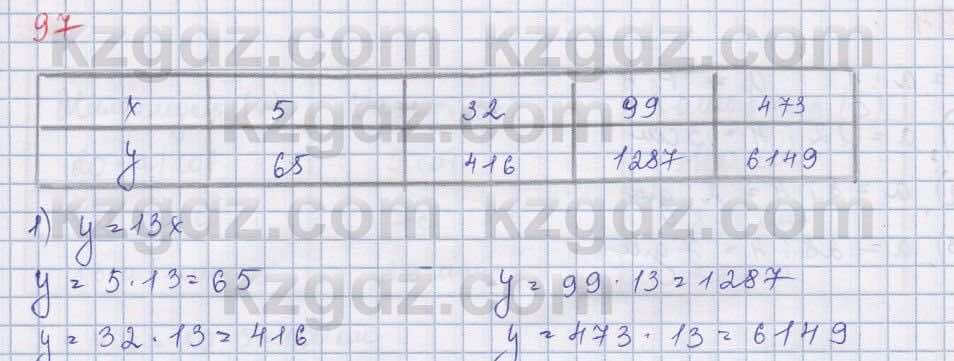 97
kzgdz.com kzgdz.com
x 5 32 99 473
kzgdz.com
y 65 416 1287 6149
kzgdz.com kzgdz.com
1) y=13x
y = 5·13=65 y = 99·13=1287
kzgdz.com
y = 32·13=416 y = 473·13=6149